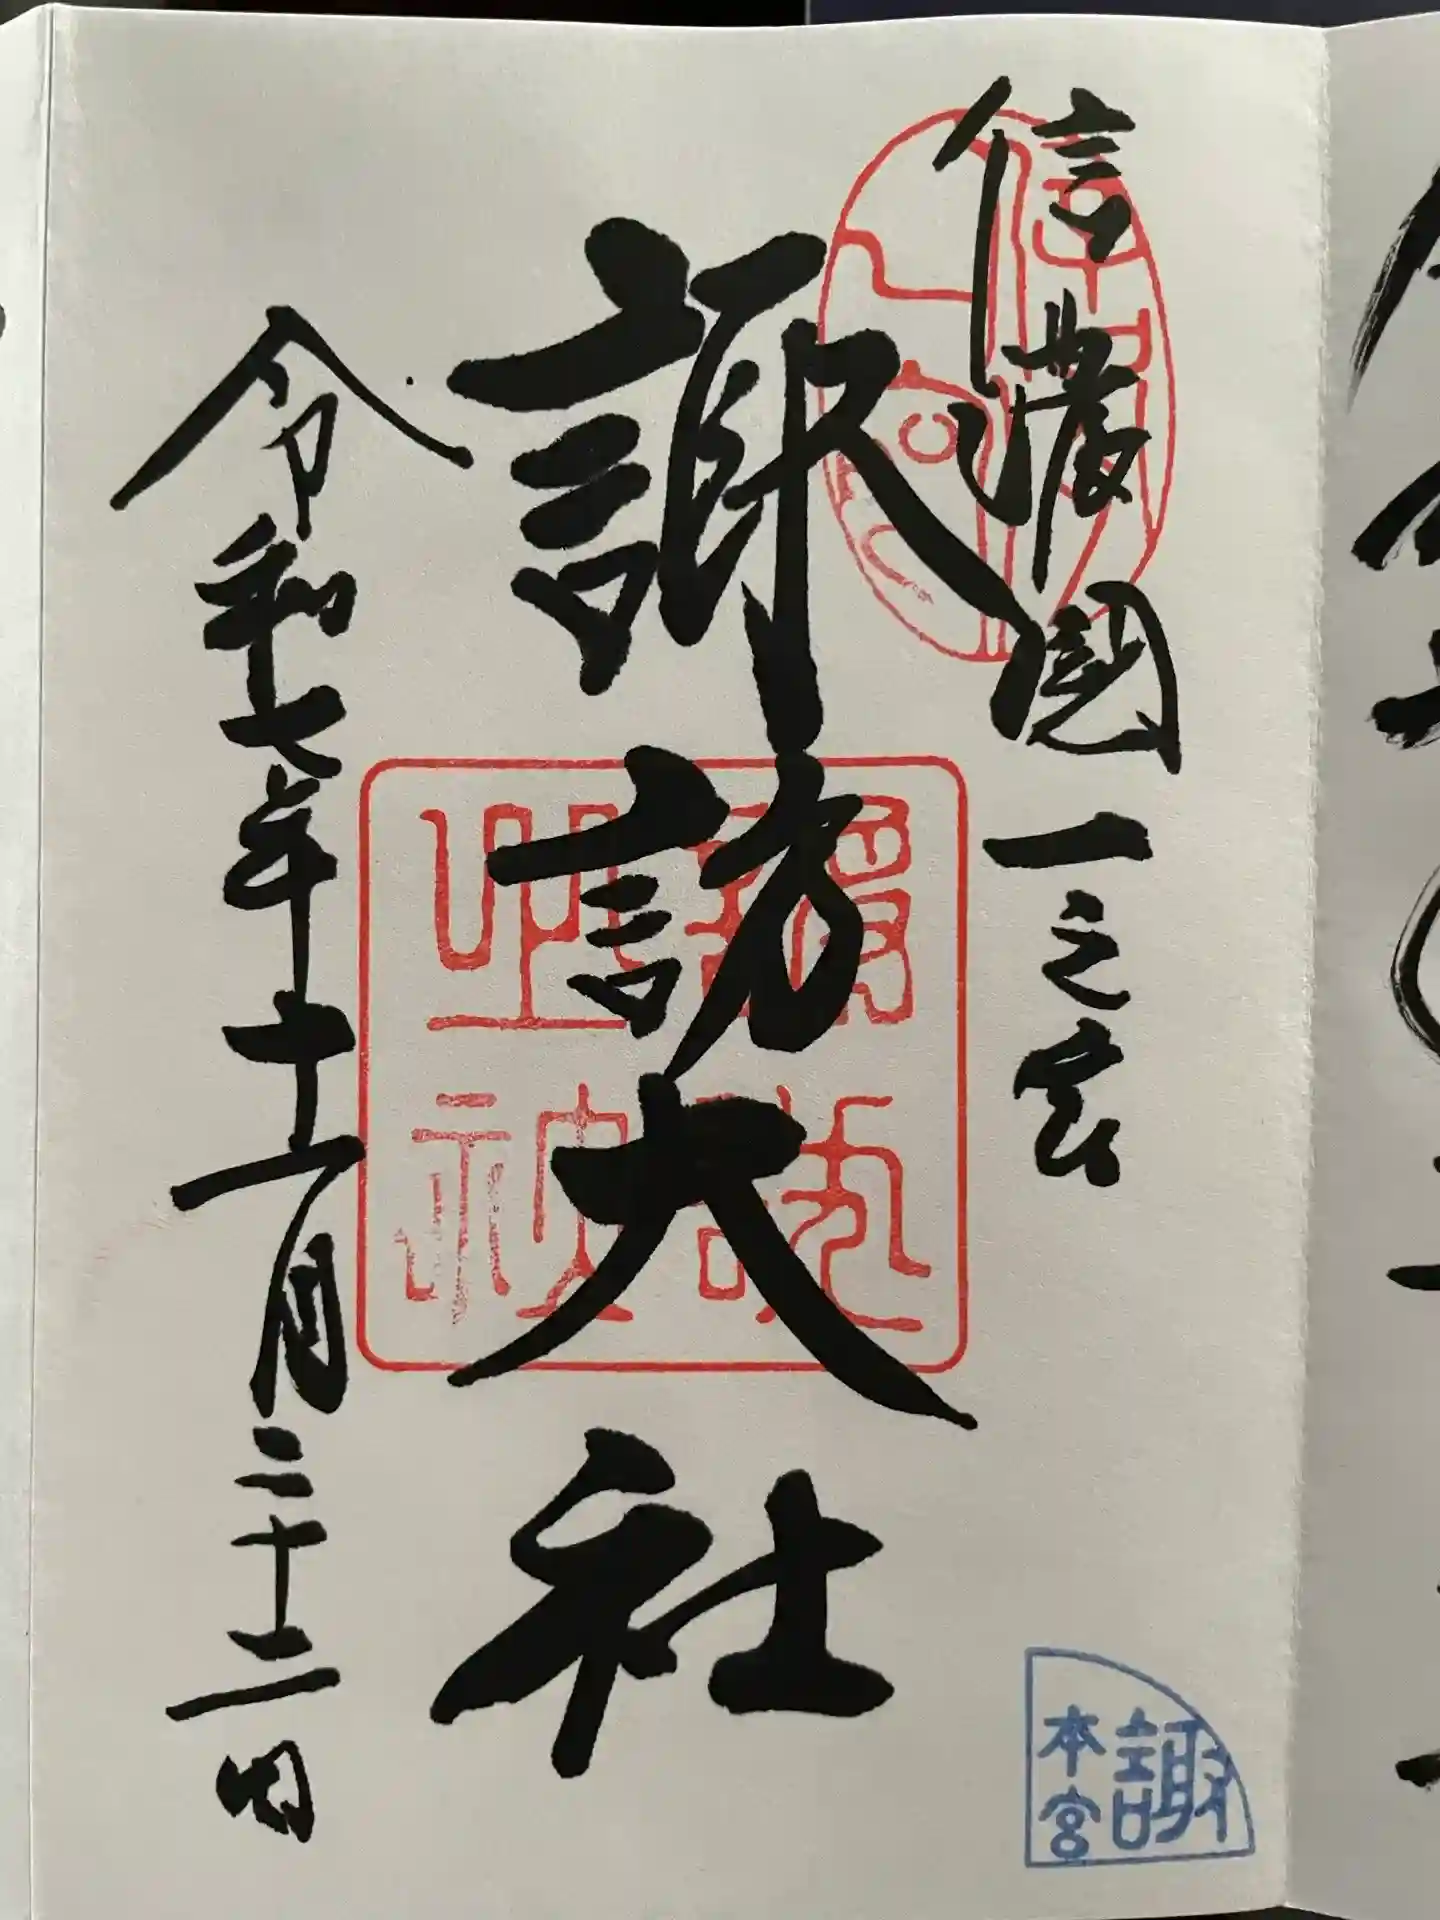 信濃國一之宮
諏訪大社
令和七年十一月二十二日
諏
本宮